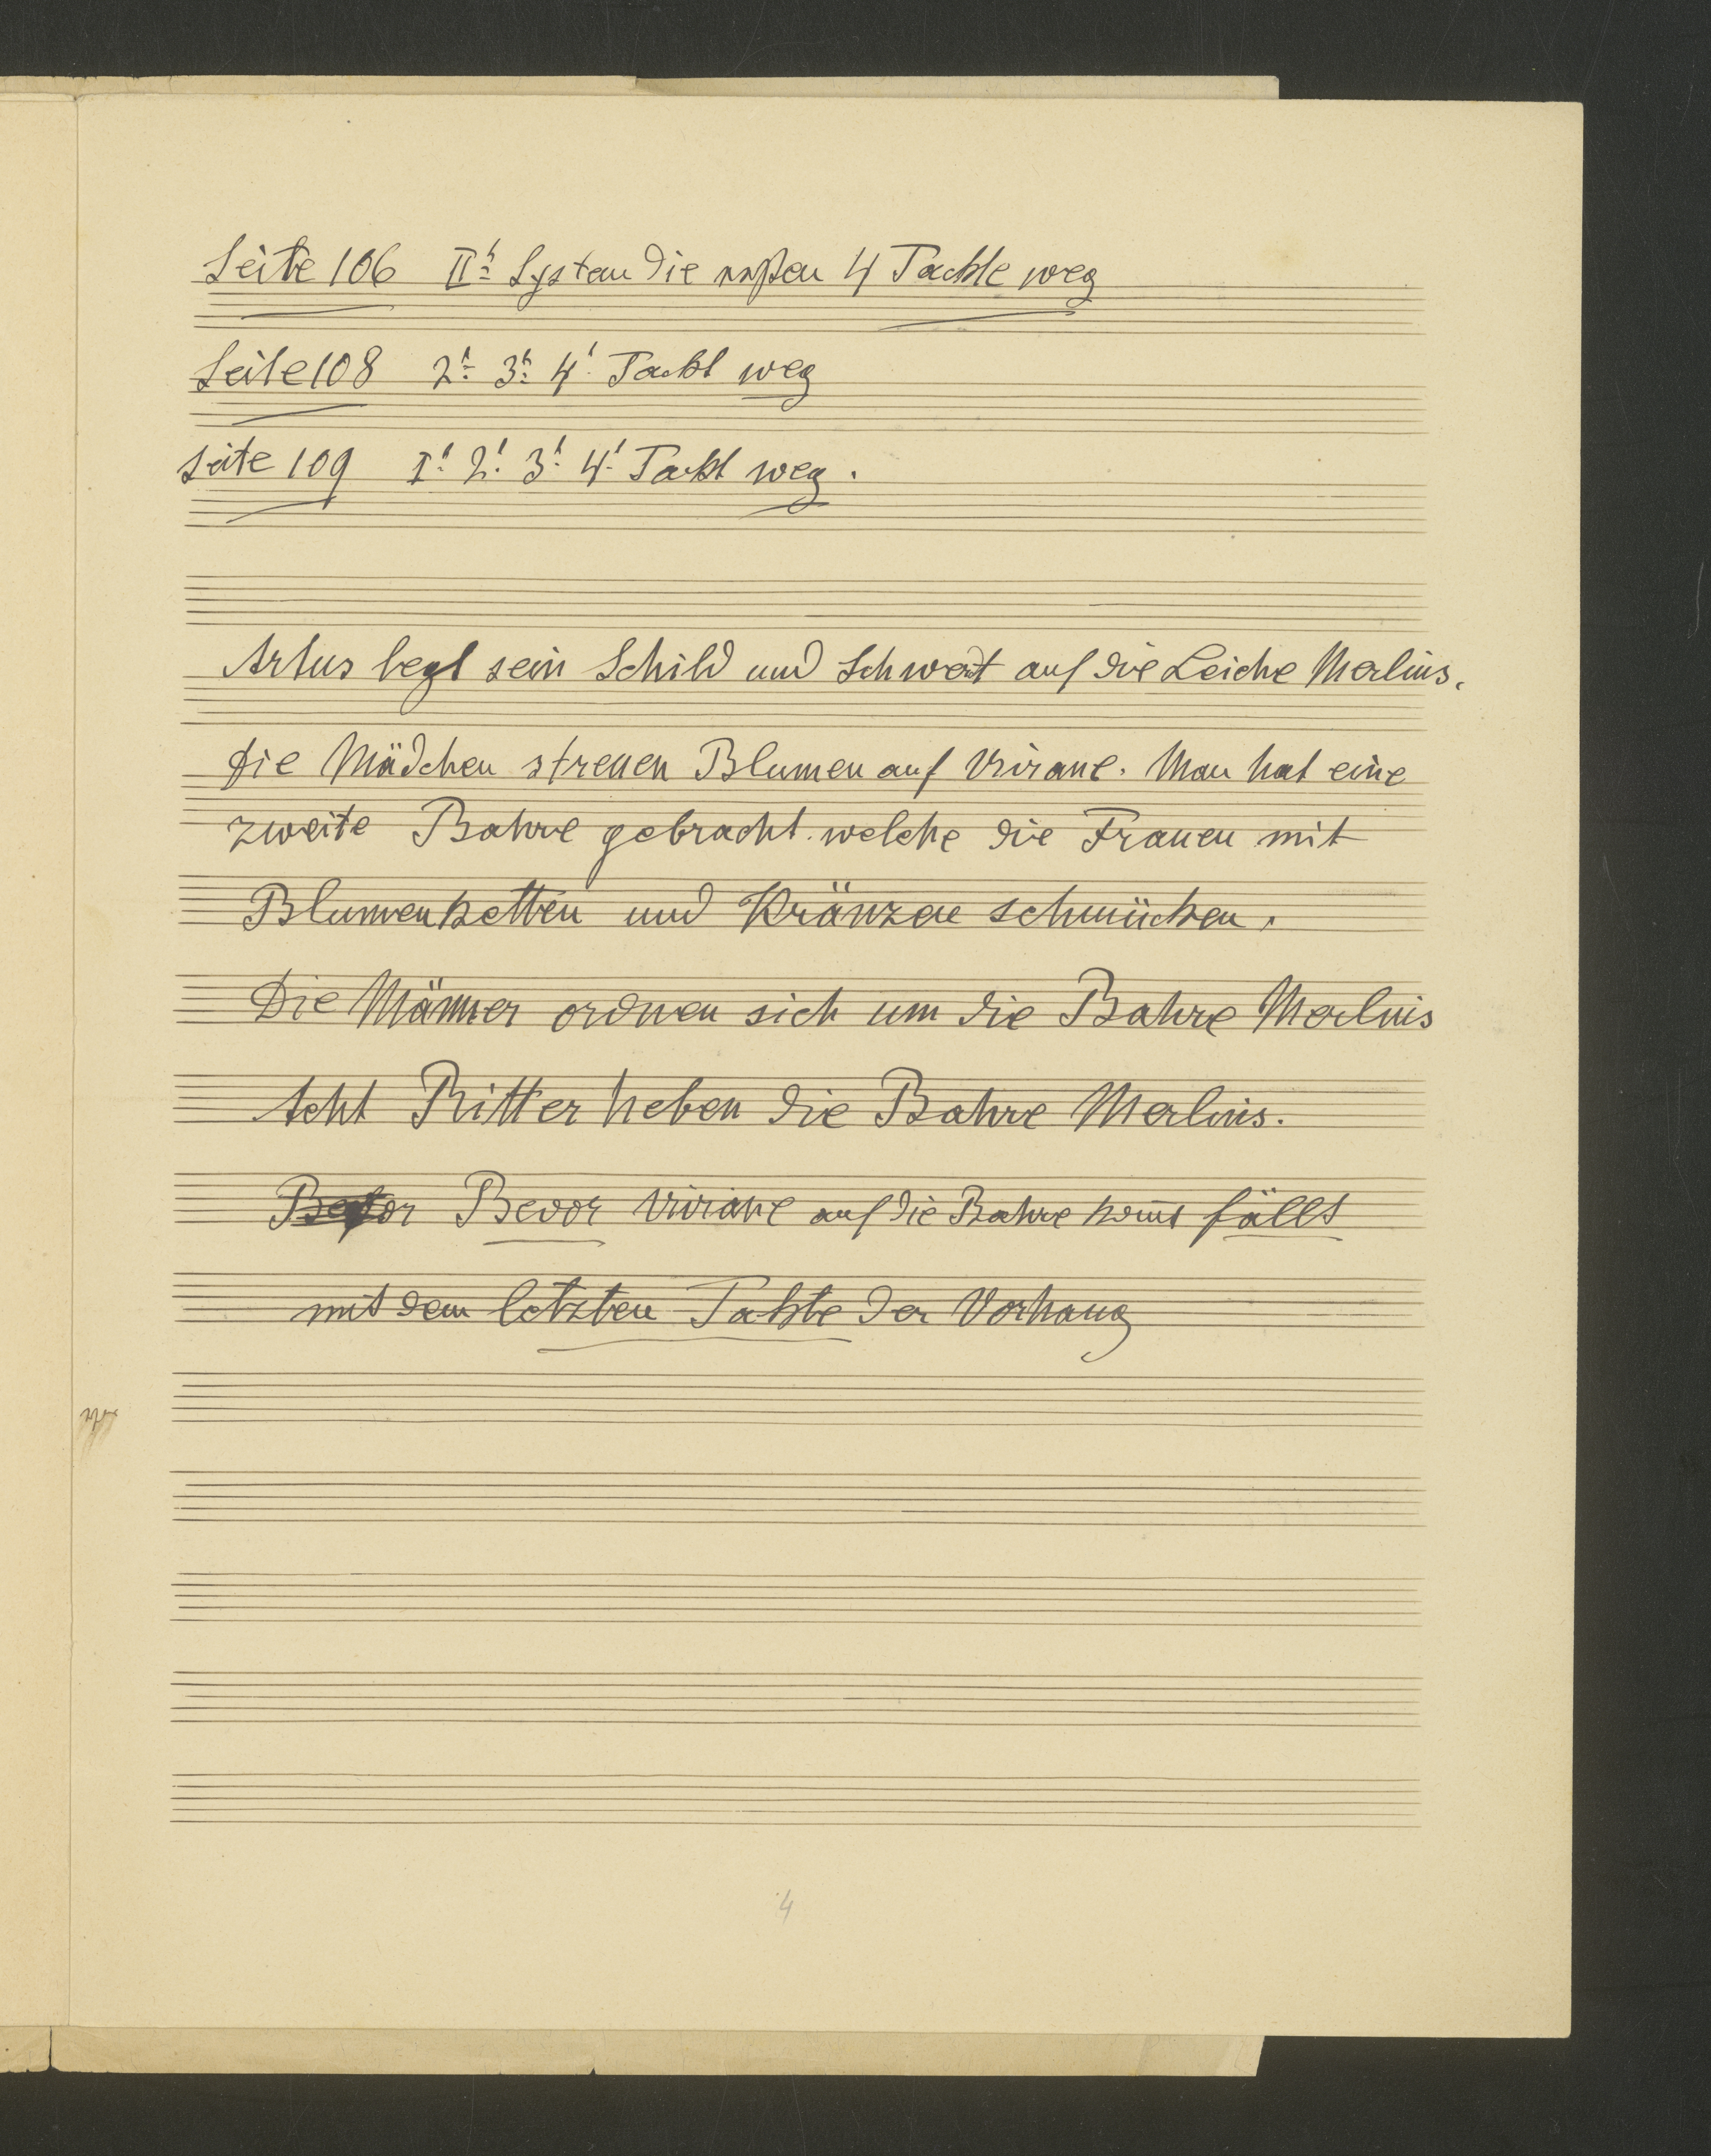 Seite 106 II^t System die ersten 4 Tackte weg
Seite 108 2^t 3^t 4^t Tackt weg
Seite 109 I^t 2^t 3^t 4^t Tackt weg.
Artus legt sein Schild und Schwert auf die Leiche Merlins.
Die Mädchen streuen Blumen auf Viviane. Man hat eine
zweite Bahre gebracht welche die Frauen mit
Blumenketten und Kränzen schmücken.
Die Männer ordnen sich um die Bahre Merlins
Acht Ritter heben die Bahre Merlins.
Bevor Viviane auf die Bahre kom̅t fällt
mit dem letzten Takte der Vorhang
4